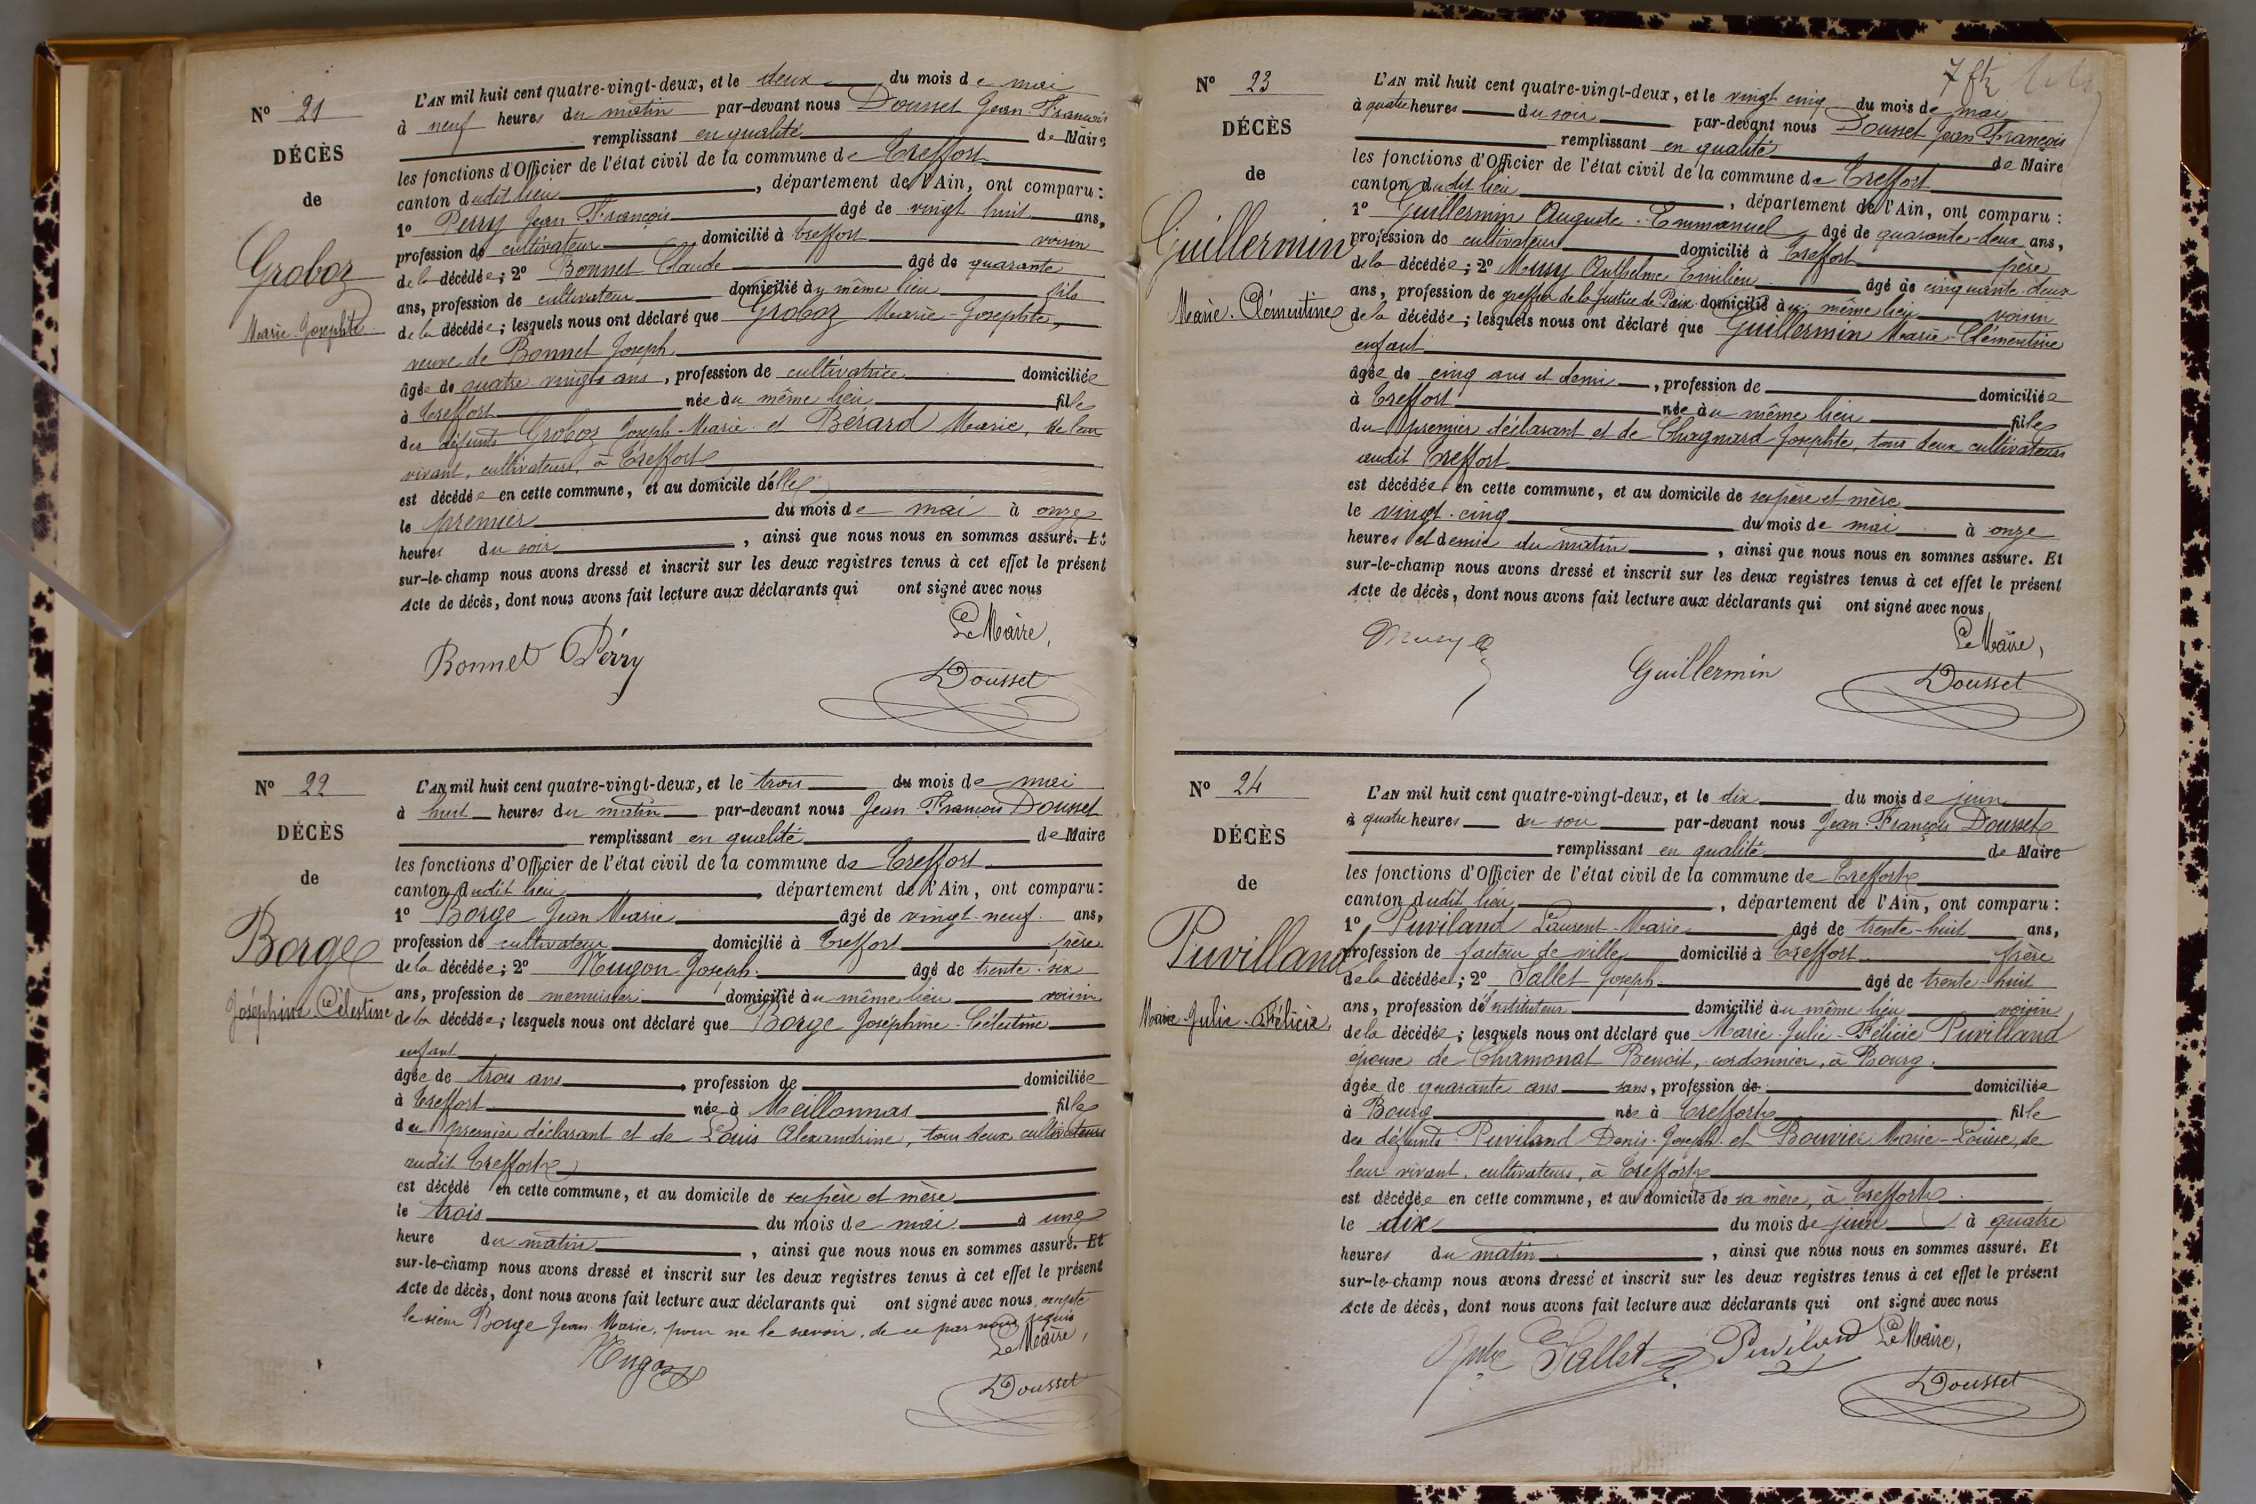 N° 21
DÉCÈS
de
Groboz
Marie-Josephte
L'AN mil huit cent quatre-vingt-deux, et le deux du mois de mai
à neuf heures du matin par-devant nous Dousset Jean-François
remplissant en qualité de Maire
les fonctions d'Officier de l'état civil de la commune de Treffort
canton dudit lieu, département de l'Ain, ont comparu :
1° Perry Jean François âgé de vingt huit ans,
profession de cultivateur domicilié à Treffort voisin
de la décédée ; 2° Bonnet Claude âgé de quarante
ans, profession de cultivateur domicilié à y même lieu fils
de la décédée ; lesquels nous ont déclaré que Groboz Marie-Josephte,
veuve de Bonnet Joseph
âgée de quatre vingts ans, profession de cultivatrice domiciliée
à Treffort née au même lieu fille
des défunts Groboz Joseph-Marie et Bérard Marie, de leur
vivant, cultivateurs, à Treffort
est décédée en cette commune, et au domicile d'elle
le premier du mois de mai à onze
heures du soir, ainsi que nous nous en sommes assuré. Et
sur-le-champ nous avons dressé et inscrit sur les deux registres tenus à cet effet le présent
Acte de décès, dont nous avons fait lecture aux déclarants qui ont signé avec nous
Le Maire,
Bonnet Pérry
Dousset
N° 22
DÉCÈS
de
Borge
Joséphine Célestine
L'AN mil huit cent quatre-vingt-deux, et le trois du mois de mai
à huit heures du matin par-devant nous Jean-François Dousset
remplissant en qualité de Maire
les fonctions d'Officier de l'état civil de la commune de Treffort
canton dudit lieu, département de l'Ain, ont comparu :
1° Borge Jean Marie âgé de vingt-neuf ans,
profession de cultivateur domicilié à Treffort père
de la décédée ; 2° Nugon Joseph âgé de trente-six
ans, profession de menuisier domicilié au même lieu voisin
de la décédée ; lesquels nous ont déclaré que Borge Joséphine-Célestine
enfant
âgée de trois ans, profession de domiciliée
à Treffort née à Meillonnas fille
du premier déclarant et de Louis Alexandrine, tous deux cultivateurs
audit Treffort
est décédé en cette commune, et au domicile de ses père et mère
le trois du mois de mai à une
heure du matin, ainsi que nous nous en sommes assuré. Et
sur-le-champ nous avons dressé et inscrit sur les deux registres tenus à cet effet le présent
Acte de décès, dont nous avons fait lecture aux déclarants qui ont signé avec nous, excepté
le sieur Borge Jean-Marie, pour ne le savoir, de ce par nous requis
Le Maire,
Nugon
Dousset
7 fk
N° 23
DÉCÈS
de
Guillermin
Marie-Clémentine
L'AN mil huit cent quatre-vingt-deux, et le vingt cinq du mois de mai
à quatre heures du soir par-devant nous Dousset Jean François
remplissant en qualité de Maire
les fonctions d'Officier de l'état civil de la commune de Treffort
canton dudit lieu, département de l'Ain, ont comparu :
1° Guillermin Auguste-Emmanuel âgé de quarante-deux ans,
profession de cultivateur domicilié à Treffort père
de la décédée ; 2° Mussy Anthelme Emilien âgé de cinquante-deux
ans, profession de greffier de la Justice de Paix domicilié au même lieu voisin
de la décédée ; lesquels nous ont déclaré que Guillermin Marie-Clémentine
enfant
âgée de cinq ans et demi, profession de domiciliée
à Treffort née au même lieu fille
du premier déclarant et de Chagnard Josephte, tous deux cultivateurs
audit Treffort
est décédée en cette commune, et au domicile de ses père et mère
le vingt-cinq du mois de mai à onze
heures et demie du matin, ainsi que nous nous en sommes assuré. Et
sur-le-champ nous avons dressé et inscrit sur les deux registres tenus à cet effet le présent
Acte de décès, dont nous avons fait lecture aux déclarants qui ont signé avec nous
Le Maire,
Guillermin
Dousset
N° 24
DÉCÈS
de
Puvilland
Marie-Julie-Félicie
L'AN mil huit cent quatre-vingt-deux, et le dix du mois de juin
à quatre heures du soir par-devant nous Jean-François Dousset
remplissant en qualité de Maire
les fonctions d'Officier de l'état civil de la commune de Treffort
canton dudit lieu, département de l'Ain, ont comparu :
1° Puviland Laurent-Marie âgé de trente-huit ans,
profession de facteur de ville domicilié à Treffort frère
de la décédée ; 2° Sallet Joseph âgé de trente-huit
ans, profession d'instituteur domicilié au même lieu voisin
de la décédée ; lesquels nous ont déclaré que Marie-Julie-Félicie Puvilland
épouse de Chamonat Benoit, cordonnier, à Bourg
âgée de quarante ans sans, profession de domiciliée
à Bourg née à Treffort fille
des défunts Puviland Denis-Joseph et Bouvier Marie-Louise, de
leur vivant, cultivateurs, à Treffort
est décédée en cette commune, et au domicile de sa mère, à Treffort
le dix du mois de juin à quatre
heures du matin, ainsi que nous nous en sommes assuré. Et
sur-le-champ nous avons dressé et inscrit sur les deux registres tenus à cet effet le présent
Acte de décès, dont nous avons fait lecture aux déclarants qui ont signé avec nous
Sallet Puviland Le Maire,
Dousset